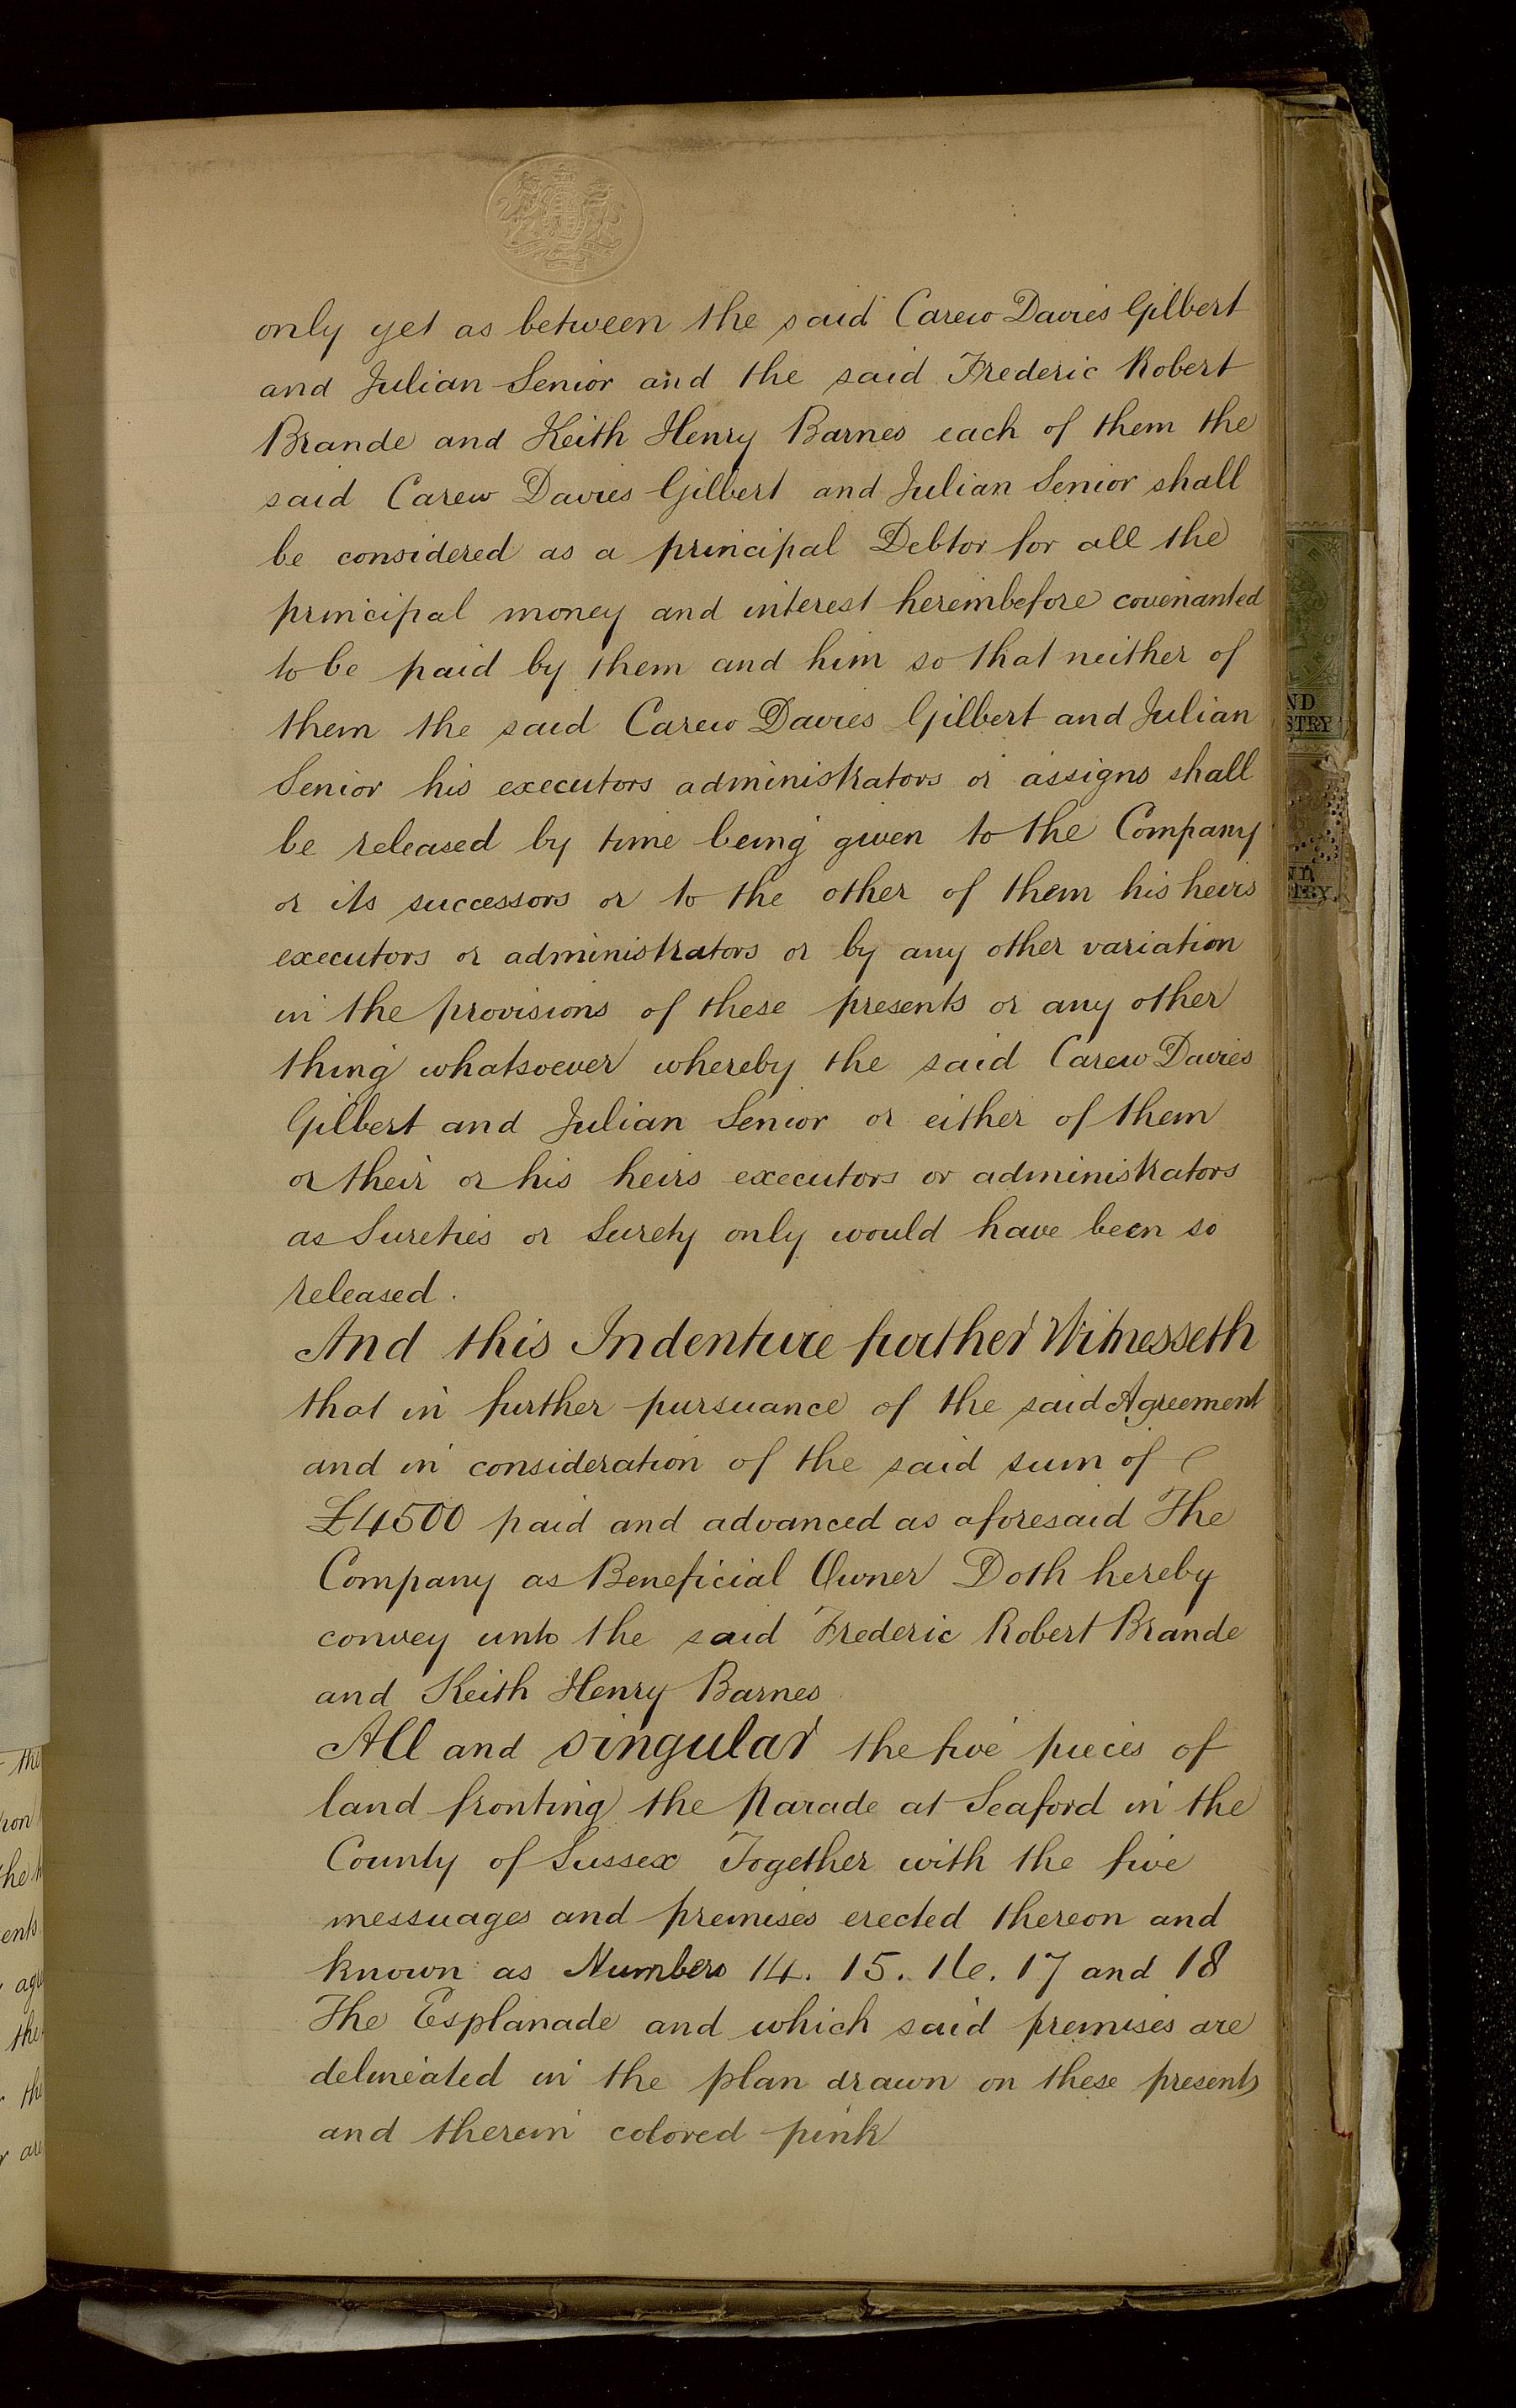 only yet as between the said Carew Davies Gilbert
and Julian Senior and the said Frederic Robert
Brande and Keith Henry Barnes each of them the
said Carew Davies Gilbert and Julian Senior shall
be considered as a principal Debtor for all the
principal money and interest hereinbefore covenanted
to be paid by them and him so that neither of
them the said Carew Davies Gilbert and Julian
Senior his executors administrators or assigns shall
be released by time being given to the Company
or its successors or to the other of them his heirs
executors or administrators or by any other variation
in the provisions of these presents or any other
thing whatsoever whereby the said Carew Davies
Gilbert and Julian Senior or either of them
or their or his heirs executors or administrators
as Sureties or Surety only would have been so
released.
And this Indenture further Witnesseth
that in further pursuance of the said Agreement
and in consideration of the said sum of
£4500 paid and advanced as aforesaid The
Company as Beneficial Owner Doth hereby
convey unto the said Frederic Robert Brande
and Keith Henry Barnes
All and singular the five pieces of
land fronting the Parade at Seaford in the
County of Sussex Together with the five
messuages and premises erected thereon and
known as Numbers 14. 15. 16. 17 and 18
The Esplanade and which said premises are
delineated in the plan drawn on these presents
and therein colored pink